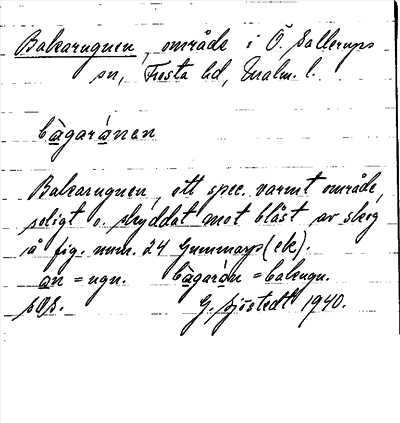 Bakarugnen, område i Ö. Sallerups
sn, Frosta hd, Malm. l.
bàgaránen
Bakarugnen, ett spec. varmt område,
soligt o. skyddat mot blåst av skog
å fig. num. 24 Gummarps (ek).
an = ugn. bàgarán = bakugn.
G. Sjöstedt 1940.